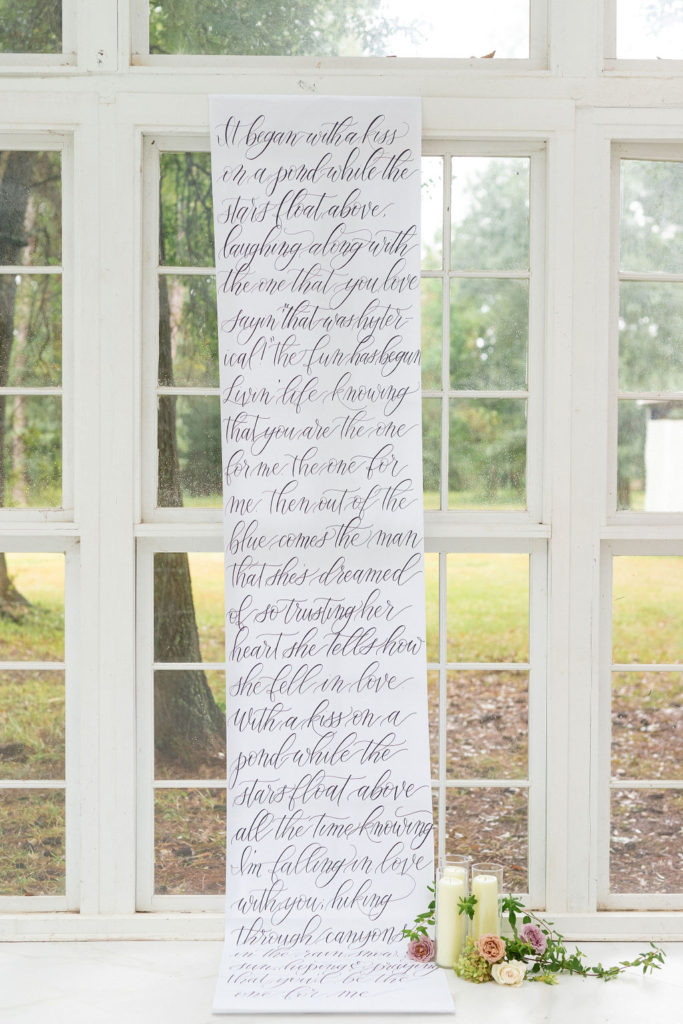 It began with a kiss
on a pond while the
stars float above.
laughing along with
the one that you love
sayin "that was hyter-
ical!" the fun has begun
Livin' life knowing
that you are the one
for me the one for
me then out of the
blue comes the man
that she's dreamed
of so trusting her
heart she tells how
she fell in love
with a kiss on a
pond while the
stars float above
all the time knowing
I'm falling in love
with you, hiking
through canyons
in the rain, snow &
sun hoping & praying
that you'll be the
one for me